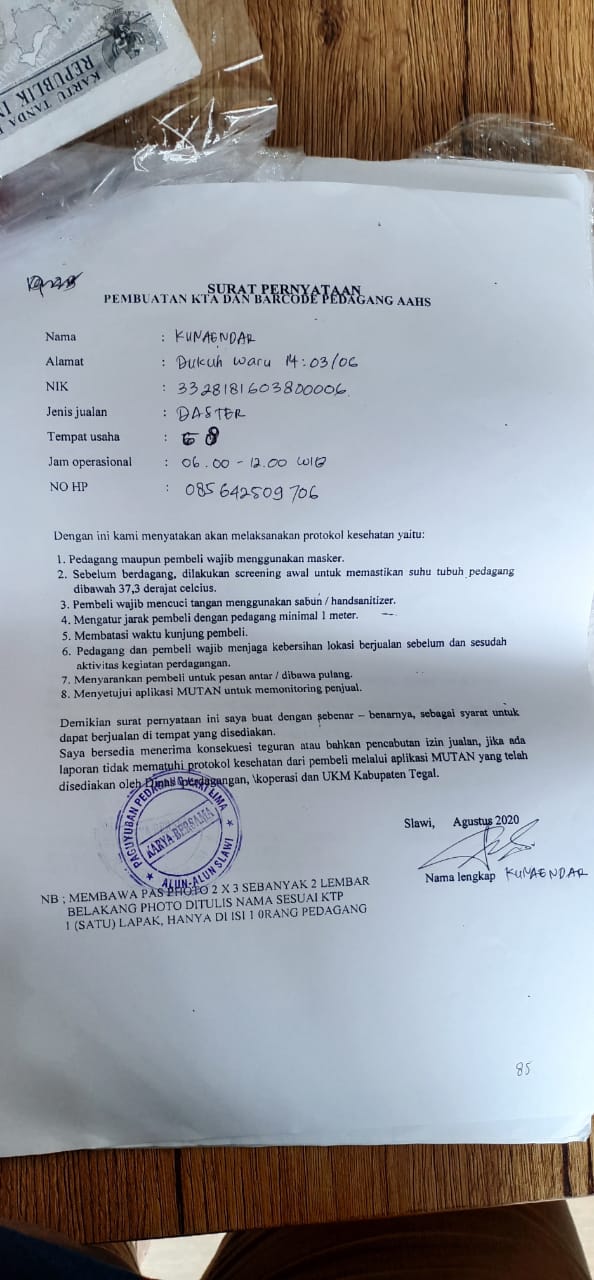 KARTU TANDA
REPUBLIK IN
SURAT PERNYATAAN
PEMBUATAN KTA DAN BARCODE PEDAGANG AAHS
Nama : KUNAENDAR
Alamat : Dukuh Waru 14:03/06
NIK : 3328181603800006
Jenis jualan : DASTER
Tempat usaha : 8
Jam operasional : 06.00 - 12.00 WIB
NO HP : 085642509706
Dengan ini kami menyatakan akan melaksanakan protokol kesehatan yaitu:
1. Pedagang maupun pembeli wajib menggunakan masker.
2. Sebelum berdagang, dilakukan screening awal untuk memastikan suhu tubuh pedagang
dibawah 37,3 derajat celcius.
3. Pembeli wajib mencuci tangan menggunakan sabun / handsanitizer.
4. Mengatur jarak pembeli dengan pedagang minimal 1 meter.
5. Membatasi waktu kunjung pembeli.
6. Pedagang dan pembeli wajib menjaga kebersihan lokasi berjualan sebelum dan sesudah
aktivitas kegiatan perdagangan.
7. Menyarankan pembeli untuk pesan antar / dibawa pulang.
8. Menyetujui aplikasi MUTAN untuk memonitoring penjual.
Demikian surat pernyataan ini saya buat dengan sebenar – benarnya, sebagai syarat untuk
dapat berjualan di tempat yang disediakan.
Saya bersedia menerima konsekuesi teguran atau bahkan pencabutan izin jualan, jika ada
laporan tidak mematuhi protokol kesehatan dari pembeli melalui aplikasi MUTAN yang telah
disediakan oleh Dinas perdagangan, \koperasi dan UKM Kabupaten Tegal.
PAGUYUBAN PEDAGANG KAKI LIMA
KARYA BERSAMA
ALUN-ALUN SLAWI
Slawi, Agustus 2020
Nama lengkap KUNAENDAR
NB ; MEMBAWA PAS PHOTO 2 X 3 SEBANYAK 2 LEMBAR
BELAKANG PHOTO DITULIS NAMA SESUAI KTP
1 (SATU) LAPAK, HANYA DI ISI 1 0RANG PEDAGANG
85